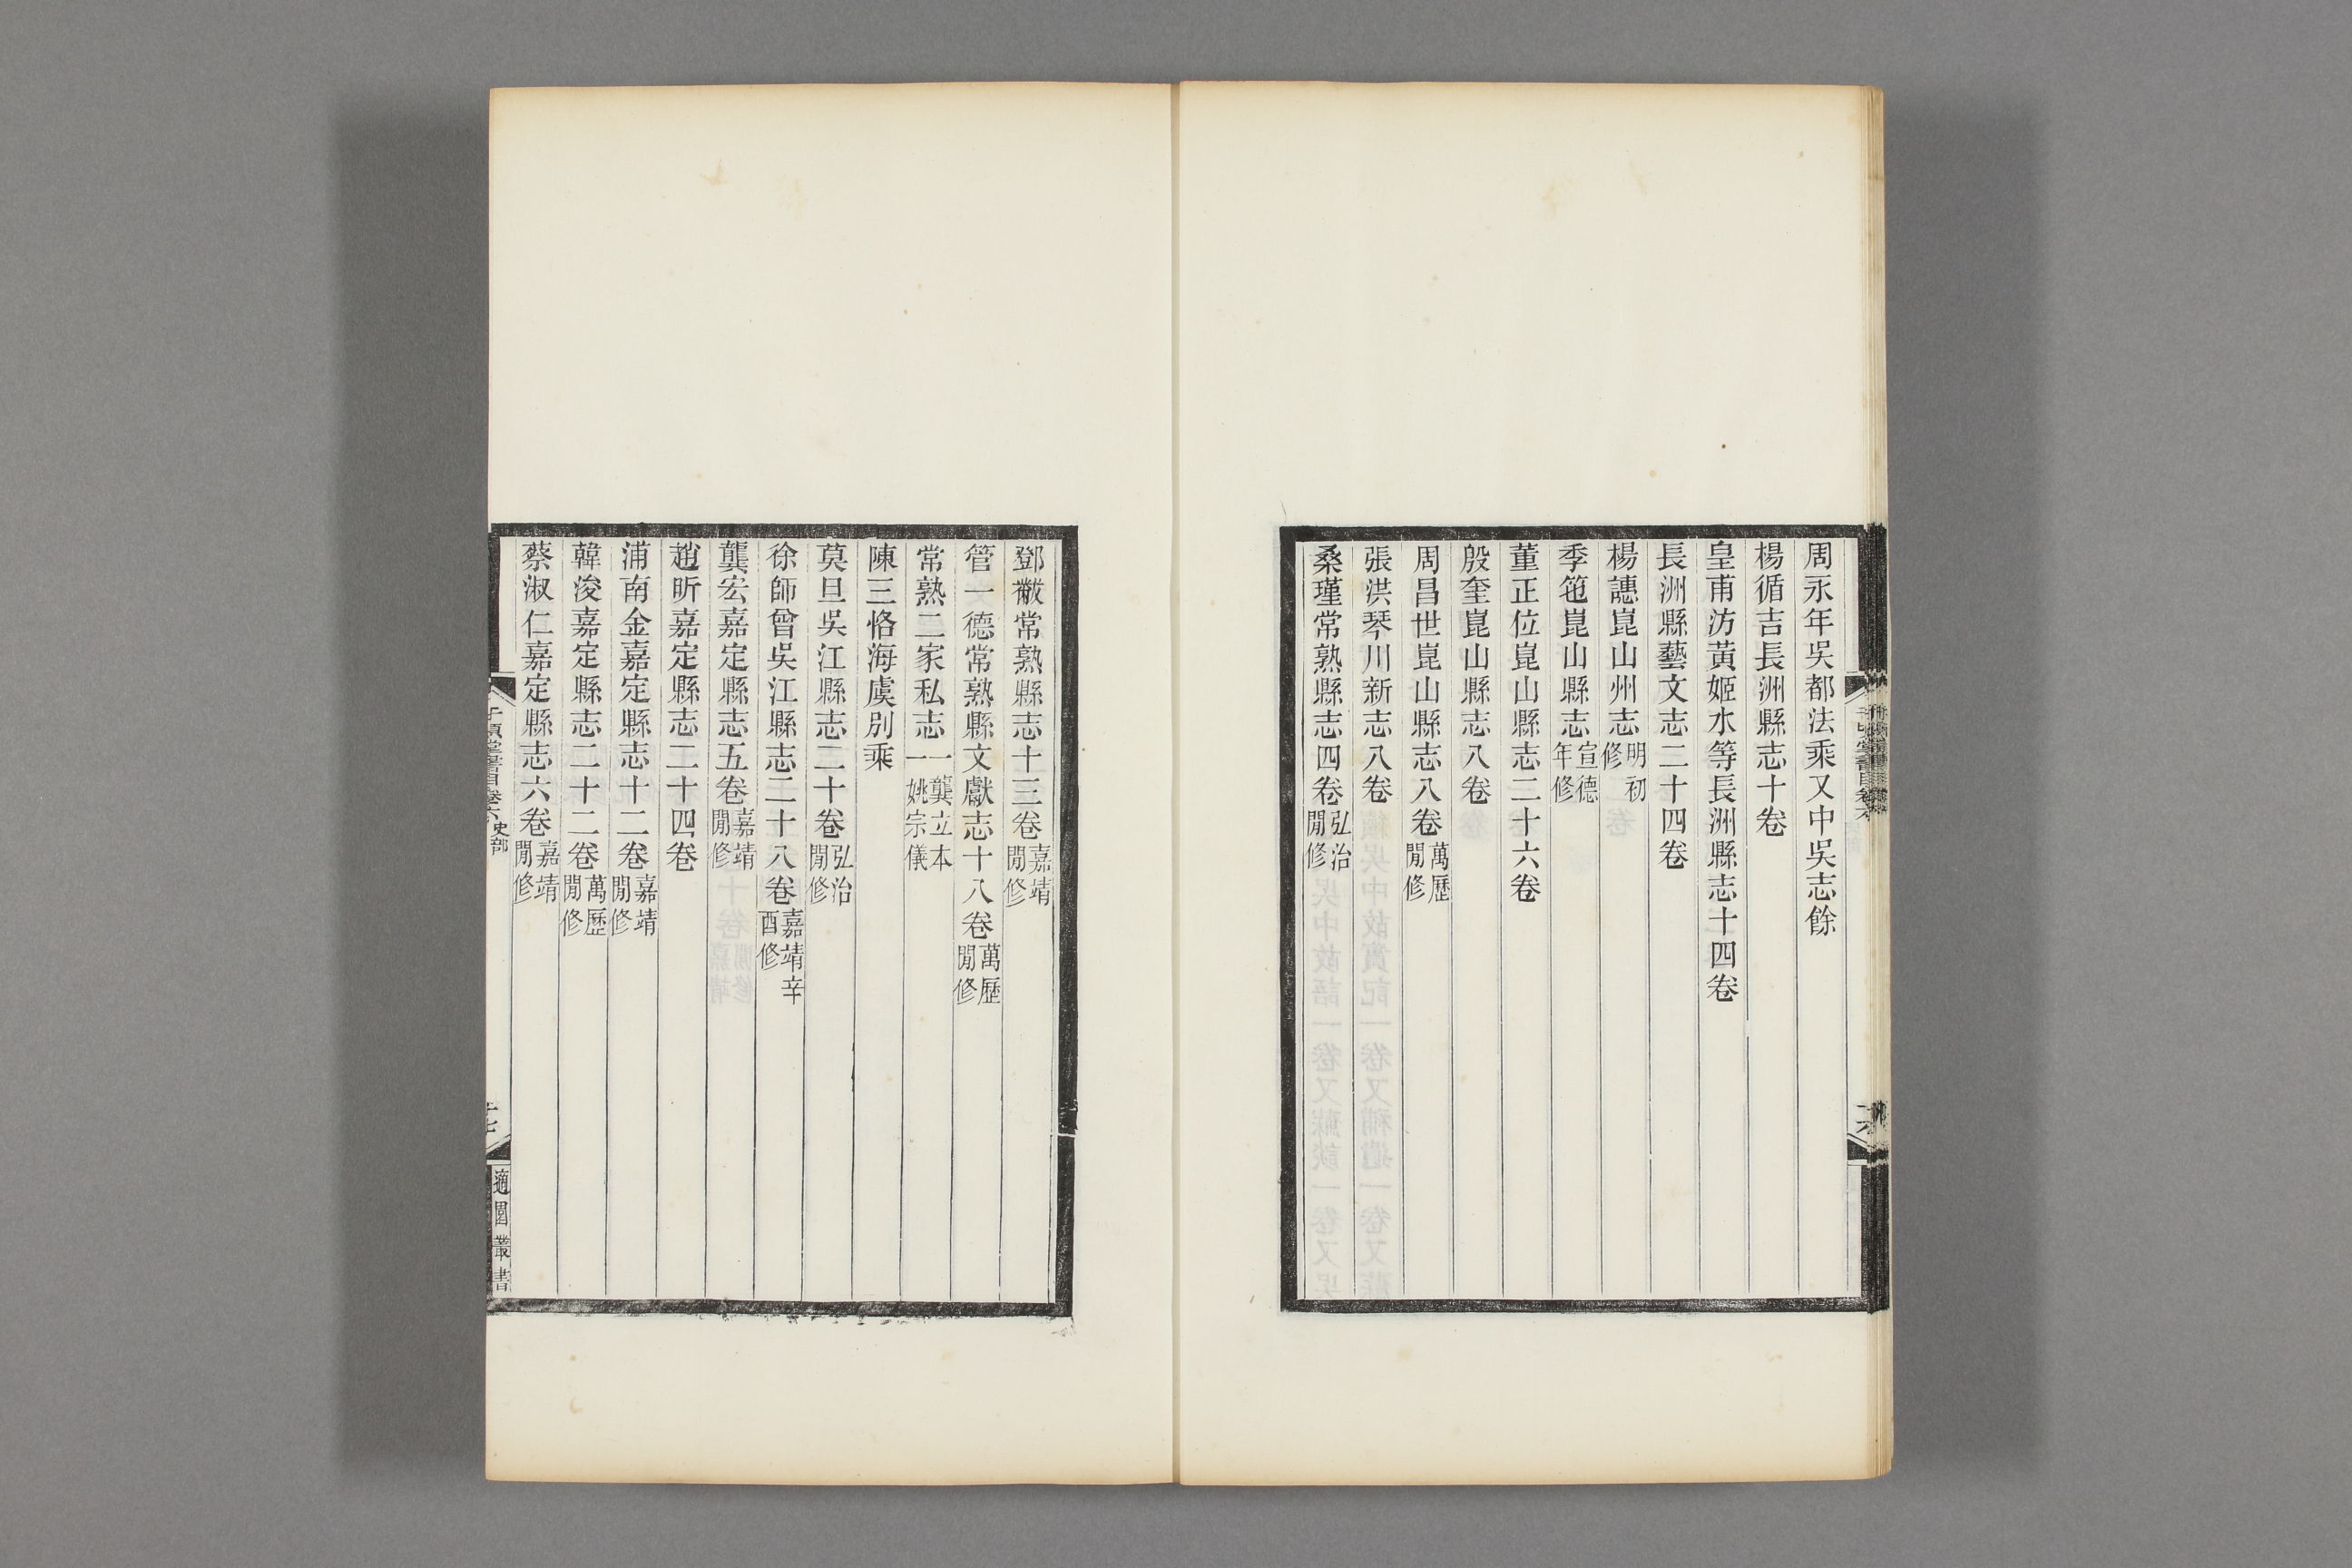 周永年吳都法乘又中吳志餘
楊循吉長洲縣志十卷
皇甫汸黃姬水等長洲縣志十四卷
長洲縣藝文志二十四卷
楊譓崑山州志明初修
季箎崑山縣志宣德年修
董正位崑山縣志二十六卷
殷奎崑山縣志八卷
周昌世崑山縣志八卷萬歷閒修
張洪琴川新志八卷
桑瑾常熟縣志四卷弘治閒修
鄧韍常熟縣志十三卷嘉靖閒修
管一德常熟縣文獻志十八卷萬歷閒修
常熟二家私志一龔立本一姚宗儀
陳三恪海虞別乘
莫旦吳江縣志二十卷弘治閒修
徐師曾吳江縣志二十八卷嘉靖辛酉修
龔宏嘉定縣志五卷嘉靖閒修
趙昕嘉定縣志二十四卷
浦南金嘉定縣志十二卷嘉靖閒修
韓浚嘉定縣志二十二卷萬歷閒修
蔡淑仁嘉定縣志六卷嘉靖閒修
千頃堂書目卷六 史部
適園叢書